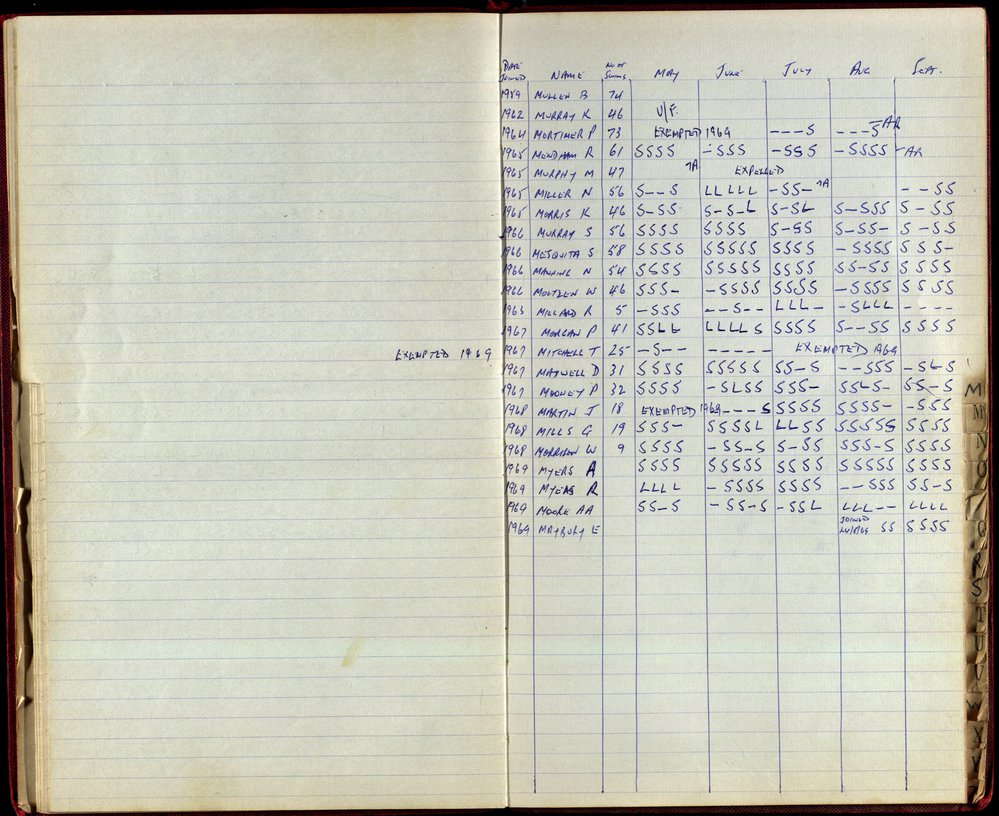 DATE JOINED NAME NO OF SWIMS MAY JUNE JULY AUG SEPT.
1959 MULLEN B 74
1962 MURRAY K 46 U/F.
1964 MORTIMER P 73 EXEMPTED 1969 ---S ---S -AR
1965 MENDHAM R 61 SSSS -SSS -SSS -SSSS -AR
1965 MURPHY M 47 EXPELLED
1965 MILLER N 56 S--S LLLLL -SS- --SS
1965 MORRIS K 46 S-SS S-S-L S-SL S-SSS S-SS
1966 MURRAY S 56 SSSS SSSS S-SS S-SS- S-SS
1966 MESQUITA S 58 SSSS SSSSS SSSS -SSSS SSS-
1966 MANNING N 54 SSSS SSSSS SSSS SS-SS SSSS
1966 MOLTZEN W 46 SSS- -SSSS SSSS -SSSS SSSS
1963 MILLARD R 5 -SSS --S-- LLL- -SLLL ----
1967 MORGAN P 41 SSLL LLLLS SSSS S--SS SSSS
EXEMPTED 1969 1967 MITCHELL T 25 -S-- ----- EXEMPTED 1969
1967 MAXWELL D 31 SSSS SSSSS SS-S --SSS -SLS
1967 MOONEY P 32 SSSS -SLSS SSS- SSLS- SS-S
1968 MARTIN J 18 EXEMPTED 1969 ---S SSSS SSSS- -SSS
1968 MILLS G 19 SSS- SSSSL LLSS SSSSS SSSS
1968 MORRISON W 9 SSSS -SS-S S-SS SSS-S SSSS
1969 MYERS A SSSS SSSSS SSSS SSSSS SSSS
1969 MYERS R LLLL -SSSS SSSS --SSS SS-S
1969 MOORE AA SS-S -SS-S -SSL LLL-- LLLL
1969 MAYBURY E JOINED SS SSSS
M
M
N
O
Q
R
S
T
U
V
W
X
Y